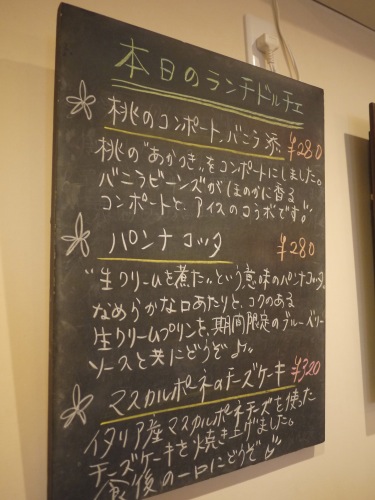 本日のランチドルチェ
桃のコンポート、バニラ添 ¥280
桃の"あかつき"をコンポートにしました。
バニラビーンズがほのかに香る
コンポートと、アイスのコラボです。
パンナコッタ ¥280
"生クリームを煮た"という意味のパンナコッタ。
なめらかな口あたりと、コクのある
生クリームプリンを、期間限定のブルーベリー
ソースと共にどうぞ♪
マスカルポーネのチーズケーキ ¥320
イタリア産マスカルポーネチーズを使った
チーズケーキを焼き上げました。
食後の一口にどうぞ